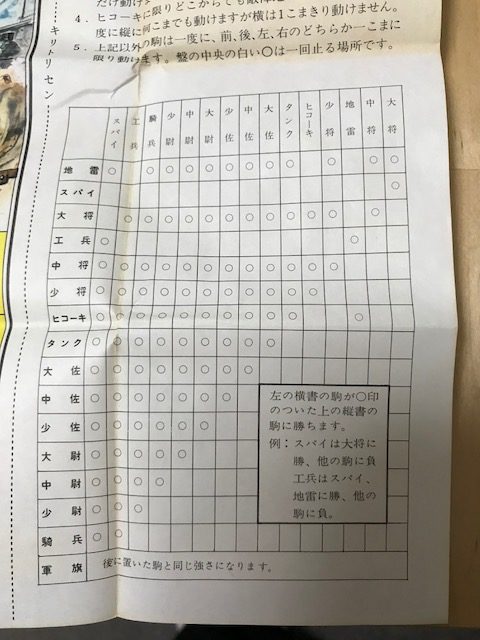 だけ動け
4．ヒコーキに限りどこからでも敵陣
度に縦に何こまでも動けますが横は1こまきり動けません。
5．上記以外の駒は一度に、前、後、左、右のどちらか一こまに
限り動けます。盤の中央の白い○は一回止る場所です。
キリトリセン
スパイ 工兵 騎兵 少尉 中尉 大尉 少佐 中佐 大佐 タンク ヒコーキ 少将 地雷 中将 大将
地雷 ○ ○ ○ ○ ○ ○ ○ ○ ○ ○
スパイ ○
大将 ○ ○ ○ ○ ○ ○ ○ ○ ○ ○ ○ ○
工兵 ○ ○
中将 ○ ○ ○ ○ ○ ○ ○ ○ ○ ○ ○ ○
少将 ○ ○ ○ ○ ○ ○ ○ ○ ○ ○ ○
ヒコーキ ○ ○ ○ ○ ○ ○ ○ ○ ○ ○ ○
タンク ○ ○ ○ ○ ○ ○ ○ ○ ○
大佐 ○ ○ ○ ○ ○ ○ ○ ○
中佐 ○ ○ ○ ○ ○ ○ ○
少佐 ○ ○ ○ ○ ○ ○
大尉 ○ ○ ○ ○ ○
中尉 ○ ○ ○ ○
少尉 ○ ○ ○
騎兵 ○ ○
軍旗 後に置いた駒と同じ強さになります。
左の横書の駒が○印
のついた上の縦書の
駒に勝ちます。
例：スパイは大将に
勝、他の駒に負
工兵はスパイ、
地雷に勝、他の
駒に負。